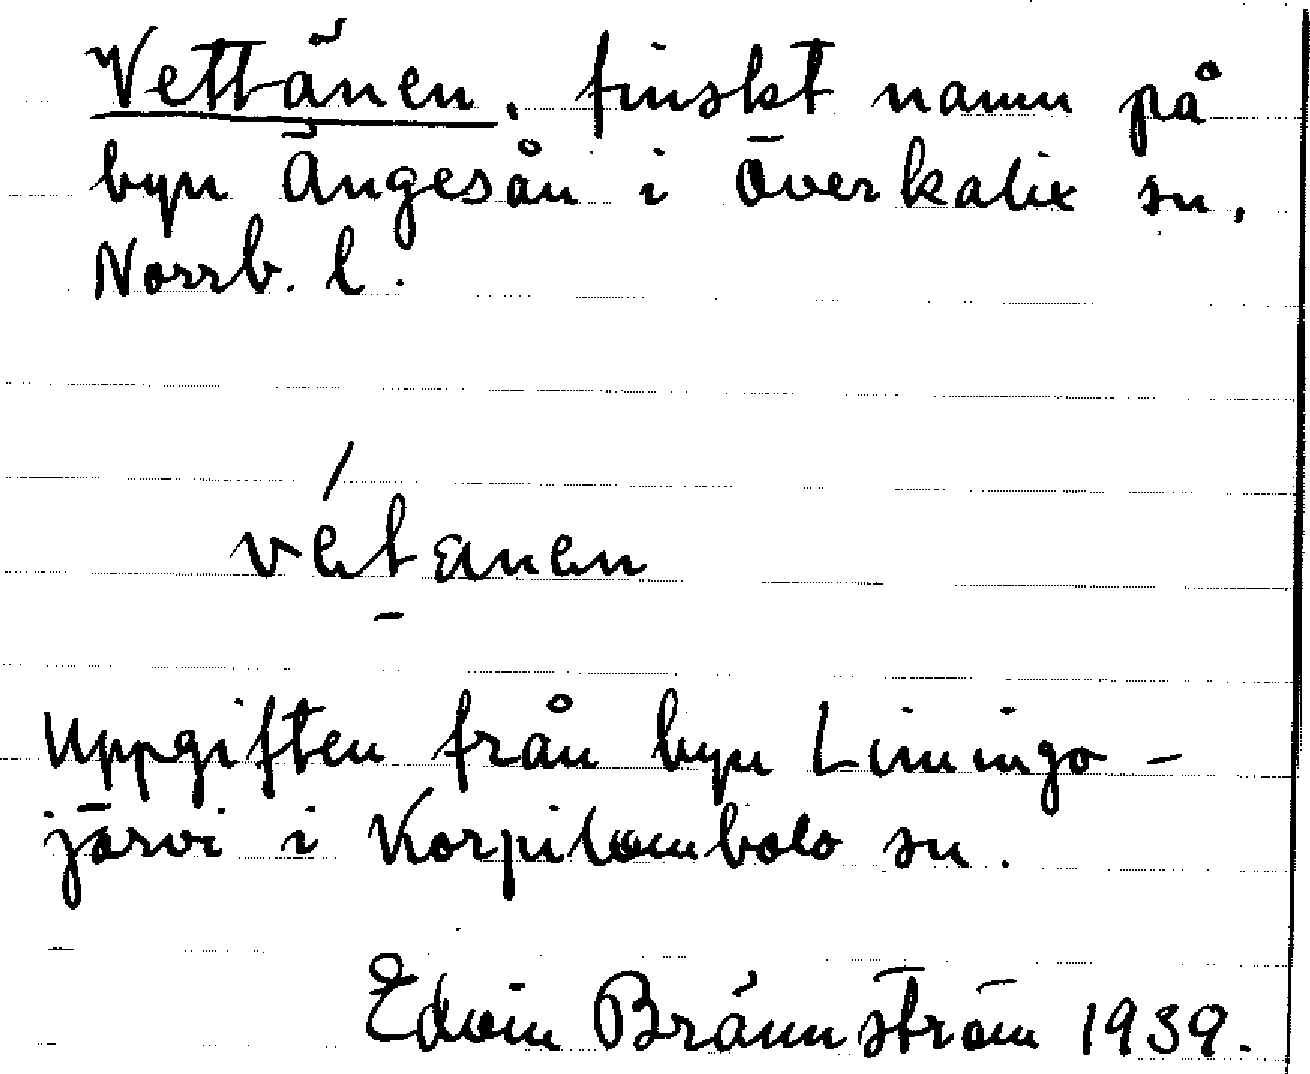 Vettänen, finskt namn på
byn Ängesån i Överkalix sn,
Norrb. l.
vét̠ænen
Uppgiften från byn Limingo-
järvi i Korpilombolo sn.
Edvin Brännström 1939.